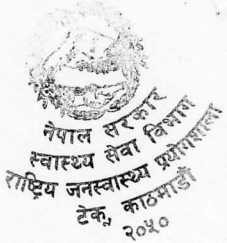 नेपाल सरकार
स्वास्थ्य सेवा विभाग
राष्ट्रिय जनस्वास्थ्य प्रयोगशाला
टेकू, काठमाडौं
२०५०